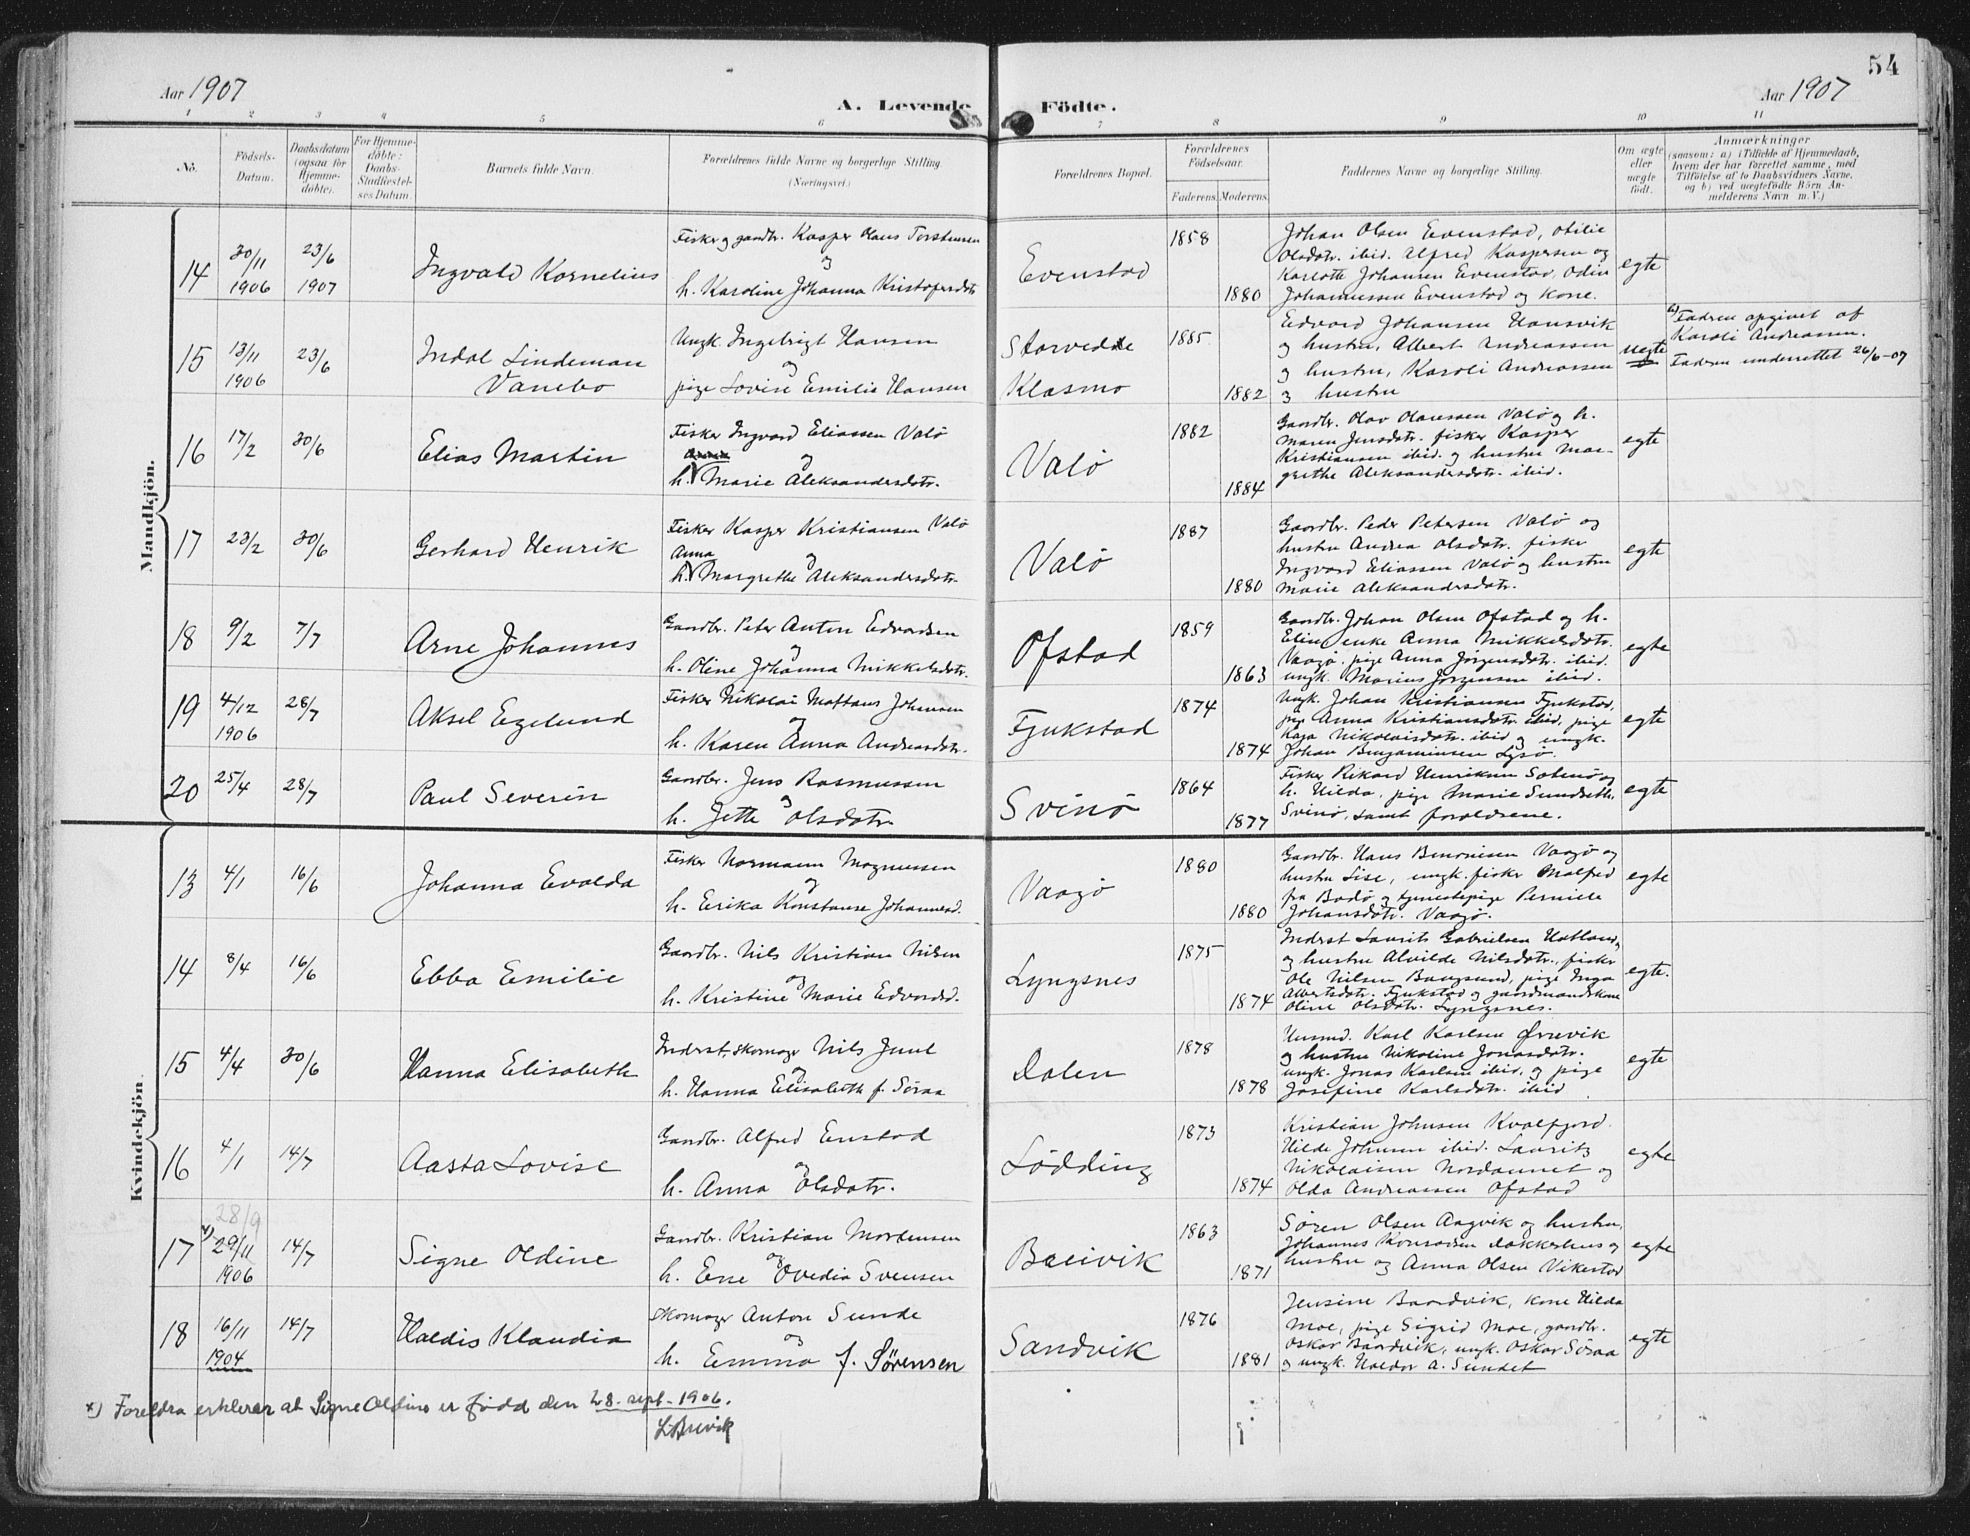 54
Aar 1907
A. Levende Födte.
Aar 1907
1 2 3 4 5 6 7 8 9 10 11
No.
Födsels-Datum.
Daabsdatum (ogsaa for Hjemme-döbte).
For Hjemme-döbte: Daabs-Stadfæstel-ses Datum.
Barnets fulde Navn.
Forældrenes fulde Navne og borgerlige Stilling.
(Næringsvei.)
Forældrenes Bopæl.
Forældrenes Födselsaar.
Faderens. Moderens.
Faddernes Navne og borgerlige Stilling.
Om ægte eller uægte födt.
Anmærkninger
(saasom: a) i Tilfælde af Hjemmedaab,
hvem der har forrettet samme, med
Tilföielse af to Daabsvidners Navne,
og b) ved uægtefödte Börn An-
melderens Navn m. V.)
Mandkjön.
14 30/11 1906 23/6 1907 Ingvald Kornelius
Fisker og gaardbr. Kasper Olaus Torstensen
og
h. Karoline Johanna Kristofersdtr
Evenstad 1858 1880
Johan Olsen Evenstad, Otilie
Olsdatr. ibid. Alfred Kaspersen og
Karlotte Johansen Evenstad, Odin
Johannessen Evenstad og kone.
egte
15 13/11 1906 23/6 Indal Lindeman
Vanebo
Ungk. Ingebrigt Hansen
og
pige Lovise Emilie Hansen
Storvedde
Klasmo
1885 1882
Edvard Johansen Hansvik
og hustru, Albert Andreassen
og hustru, Karoli Andreassen
og hustru
uegte
a) Fadren opgivet af
Karoli Andreassen.
Fadren underrettet 26/6-07
16 17/2 30/6 Elias Martin
Fisker Ingvard Eliassen Valø
og
h. Marie Aleksandersdatr.
Valø 1882 1884
Gaardbr. Olav Olaussen Valø og h.
Maren Jensdatr. fisker Kasper
Kristiansen ibid. og hustru Mar-
grethe Aleksandersdatr. ibid.
egte
17 23/2 30/6 Gerhard Henrik
Fisker Kasper Kristiansen Valø
Anna og
h. Margrethe Aleksandersdatr.
Valø 1887 1880
Gaardbr. Peder Petersen Valø og
hustru Andrea Olsdatr. fisker
Ingvard Eliassen Valø og hustru
Marie Aleksandersdatr.
egte
18 9/2 7/7 Arne Johannes
Gaardbr. Peter Anton Edvardsen
og
h. Oline Johanna Mikkelsdatr.
Ofstad 1859 1863
Gaardbr. Johan Olsen Ofstad og h.
Elin, enke Anna Mikkelsdatr.
Vaagø, pige Anna Jørgensdatr. ibid.
ungk. Marius Jørgensen ibid.
egte
19 4/12 1906 28/7 Aksel Egelund
Fisker Nikolai Mattæus Johnsen
og
h. Karen Anna Andreasdatr.
Fjukstad 1874 1874
Ungk. Johan Kristiansen Fjukstad,
pige Anna Kristiansdatr. ibid, pige
Kaja Nikolaisdatr. ibid og ungk.
Johan Benjaminsen Lysø.
egte
20 25/4 28/7 Paul Severin
Gaardbr. Jens Rasmussen
og
h. Jette Olsdatr.
Svinø 1864 1877
Fisker Rikard Henriksen Solemø og
h. Hilda, pige Marie Sundseth
Svinø, samt forældrene.
egte
Kvindekjön.
13 4/1 16/6 Johanna Evalda
Fisker Normann Magnussen
og
h. Erika Konstanse Johannesd.
Vaagø 1880 1880
Gaardbr. Hans Benonisen Vaagø og
hustru Lise, ungk. fisker Malfred
fra Bodø og tjenestepige Pernille
Johansdatr. Vaagø.
egte
14 8/4 16/6 Ebba Emilie
Gaardbr. Nils Kristian Nilsen
og
h. Kristine Marie Edvardsd.
Lyngsnes 1875 1874
Inderst Laurits Gabrielsen Hatland,
og hustru Alvilde Nilsdatr., fisker
Ole Nilsen Bangsund, pige Inga
Albertsdatr. Fjukstad og gaardmandskone
Oline Olsdatr. Lyngsnes.
egte.
15 4/4 30/6 Hanna Elisabeth
Inderst, skomager Nils Juul
og
h. Hanna Elisabeth f. Søraa
Dalen 1878 1878
Husmd. Karl Karlsen Ørrevik
og hustru Nikoline Jonasdatr.
ungk. Jonas Karlsen ibid. og pige
Josefine Karlsdatr. ibid
egte
16 4/1 14/7 Aasta Lovise
Gaardbr. Alfred Enstad
og
h. Anna Olsdatr.
Lødding 1873 1874
Kristian Johnsen Kvalfjord.
Hilde Johnsen ibid. Lauritz
Nikolaisen Nordaunet og
Olda Andreassen Ofstad
egte
28/9
17 x) 29/11 1906 14/7 Signe Oldine
Gaardbr. Kristian Mortensen
og
h. Ene Ovedia Svensen
Breivik 1863 1871
Søren Olsen Aagvik og hustru,
Johannes Konradsen Dakkerhus og
hustru og Anna Olsen Vikestad
egte
18 16/11 1904 14/7 Haldis Klaudia
Skomager Anton Sunde
og
h. Emma f. Sørensen
Sandvik 1876 1881
Jensine Baardvik, kone Hilda
Moe, pige Sigrid Moe, gaardbr.
Oskar Baardvik, ungk. Oskar Søraa
og ungk. Haldor A. Sundet
egte
x) Foreldra erklerer at Signe Oldine er fødd den 28. sept. 1906.
L Breivik